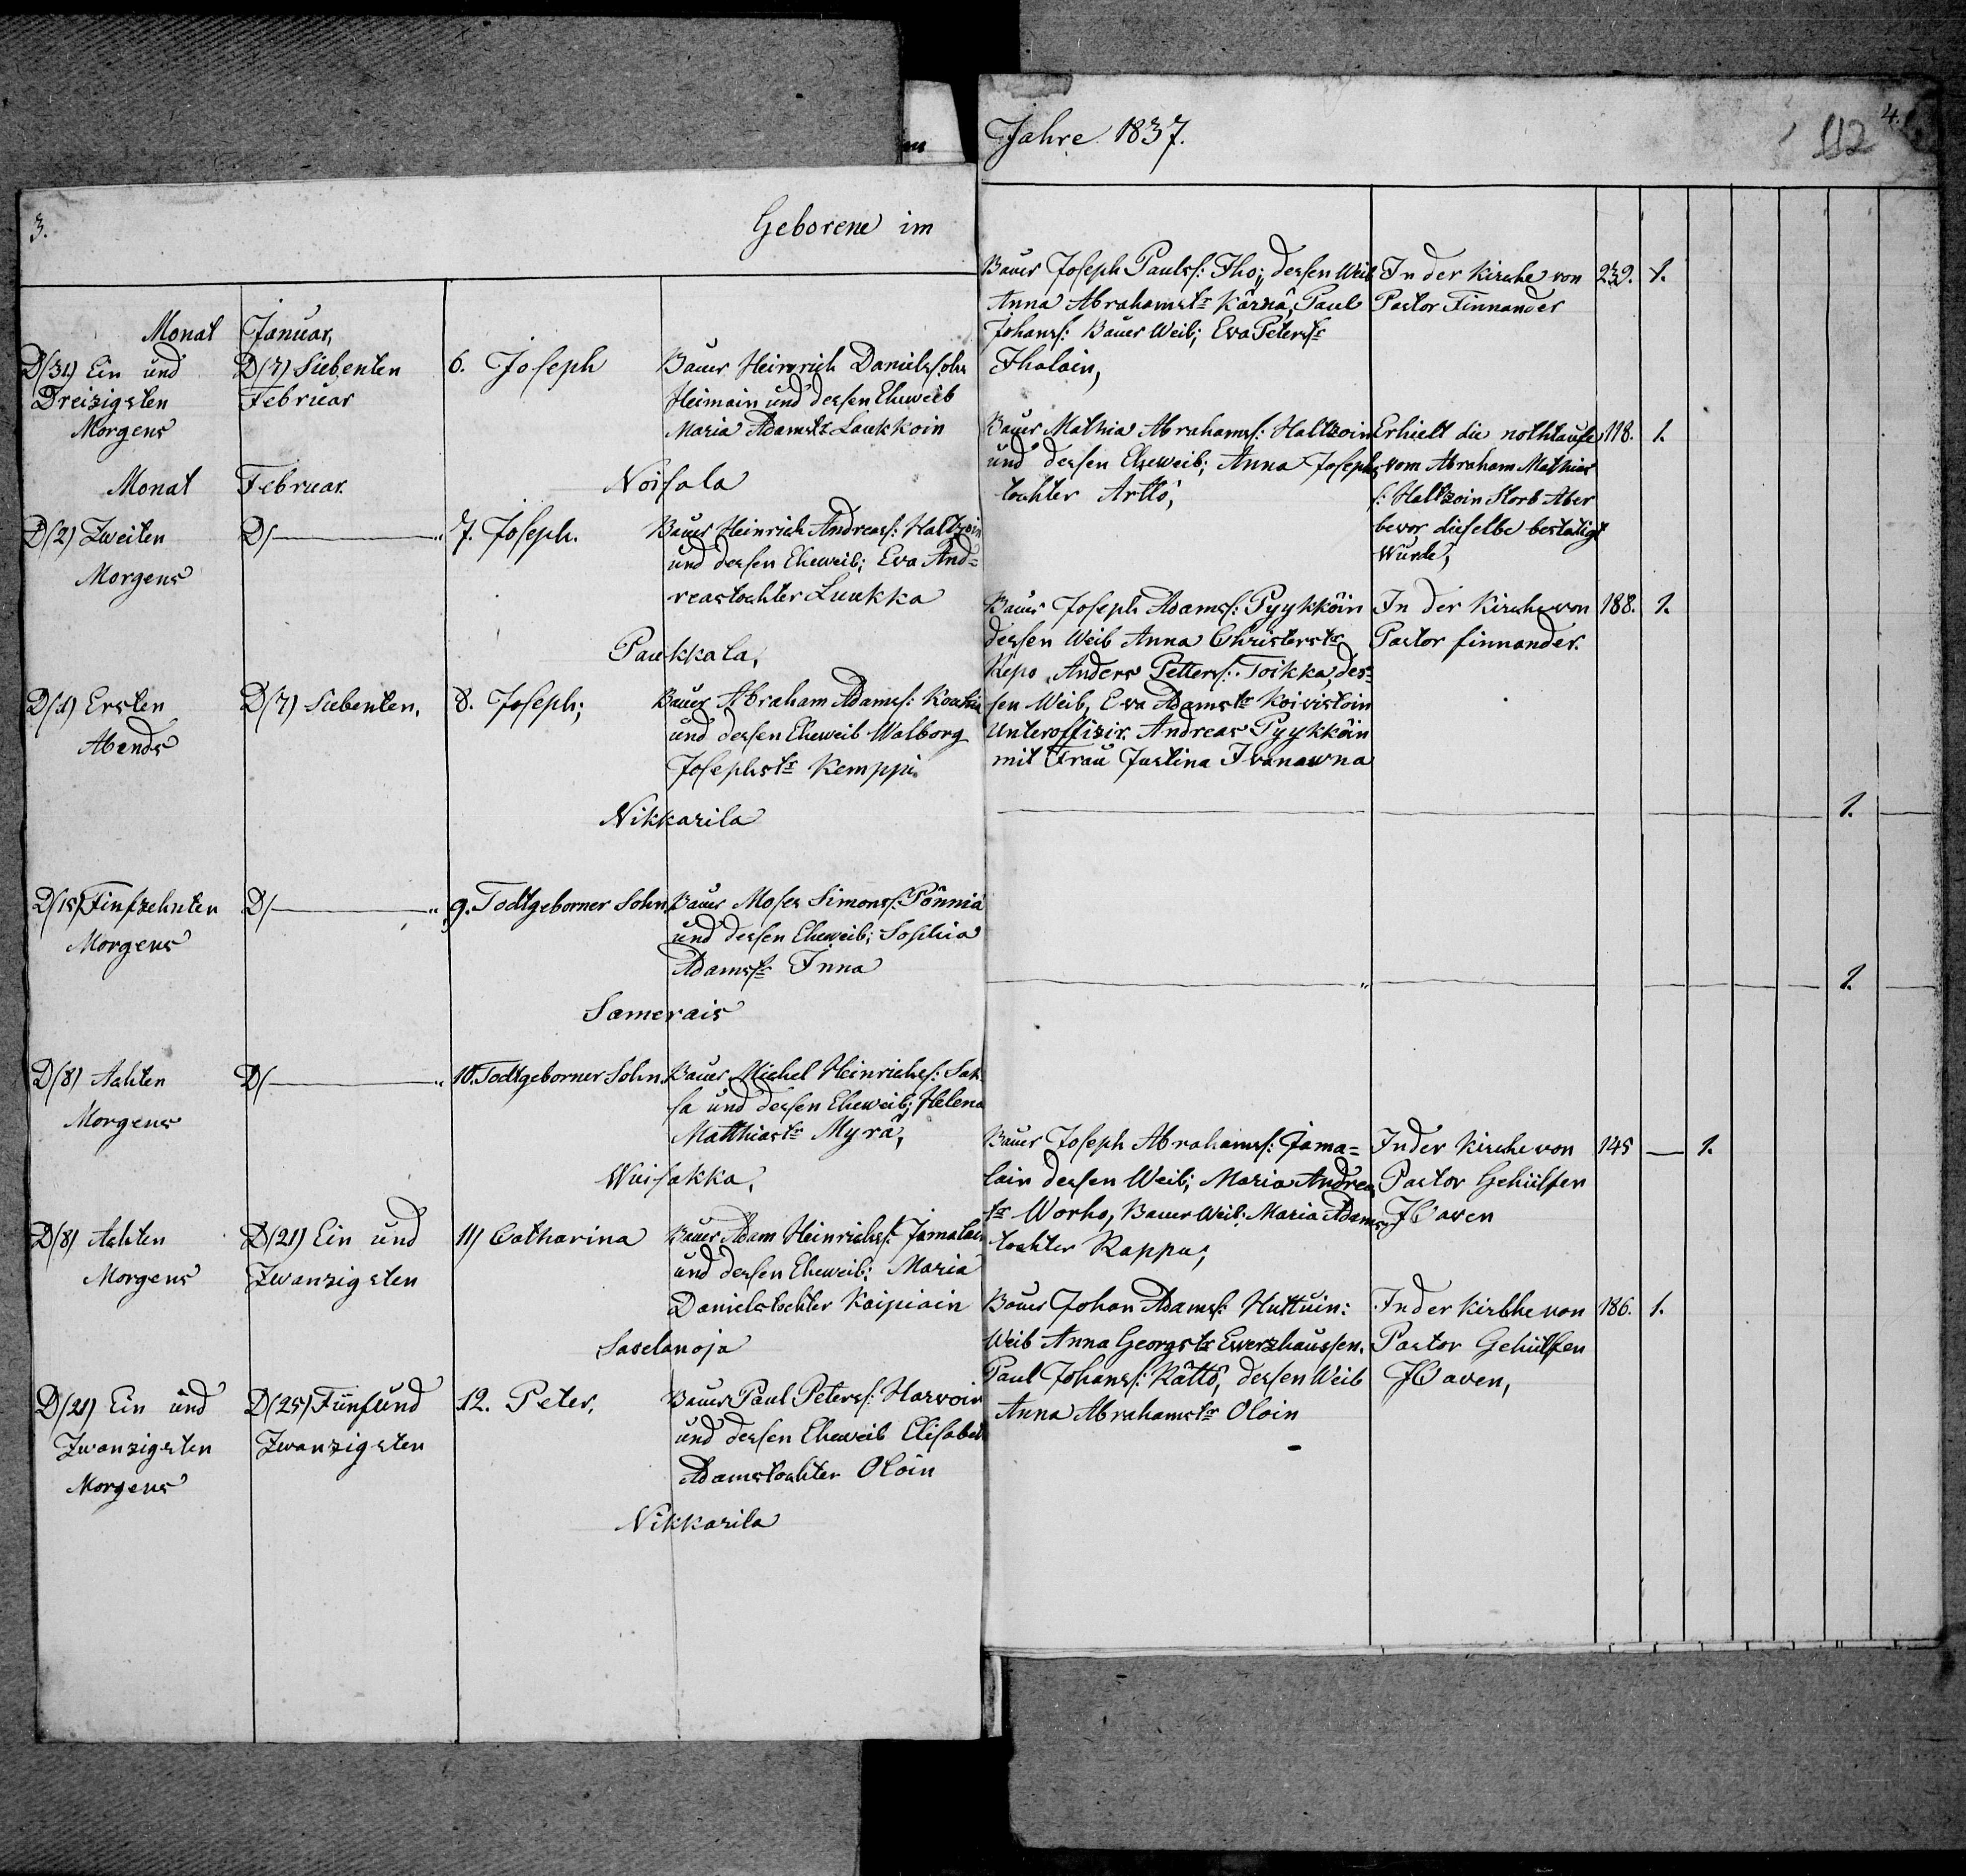 3.
Geborene im
Monat Januar,
D(31) Ein und
Dreizigsten
Morgens
D(7) Siebenten
Februar
6. Joseph
Bauer Heinrich Danielssohn
Heimain und dessen Eheweib
Maria Adamstr Laukkoin
Noisala
Monat Februar.
D(2) Zweiten
Morgens
D(
7. Joseph.
Bauer Heinrich Andreass: Haltzoin
und dessen Eheweib; Eva And=
reastochter Luukka
Paukkala,
D(1) Ersten
Abends
D(7) Siebenten.
8. Joseph;
Bauer Abraham Adams:
und dessen Eheweib Walborg
Josephstr Kemppi.
Nikkarila
D(15) Finfzehnten
Morgens
D(
9. Todtgeborner Sohn.
Bauer Moses Simons: Pönniä
und dessen Eheweib; Sophia
Adamstr Inna
Samerais
D(8) Achten
Morgens
D(
10. Todtgeborner Sohn.
Bauer Michel Heinrichs: Sak
sa und dessen Eheweib; Helena
Matthiastr Myrä,
Wuisakka,
D(8) Achten
Morgens
D(21) Ein und
Zwanzigsten
11) Catharina
Bauer Adam Heinrichs: Jamalain
und dessen Eheweib; Maria
Danielstochter Kaipiain
Saselanoja
D(21) Ein und
Zwanzigsten
Morgens
D(25) Fünfund
Zwanzigsten
12. Peter,
Bauer Paul Peters: Harvoin
und dessen Eheweib Elisabet
Adamstochter Oloin
Nikkarila
Jahre 1837.
112
4.
Bauer Joseph Pauls: Iho; dessen Weib
Anna Abrahamstr Kärnä, Paul
Johans: Bauer Weib; Eva Peterstr
Ihalain,
In der Kirche von
Pastor Finnander
232. 1.
Bauer Mathia Abrahams: Haltzoin
und dessen Eheweib; Anna Josephs
tochter Artto,
Erhielt die nothtaufe
vom Abraham Mathias
s: Haltzoin Storb Aber
bevor dieselbe bestatigt
Wurde,
118. 1.
Bauer Joseph Adams: Pyykköin
dessen Weib Anna Christerstr
Repo, Anders Petters: Toikka, des=
sen Weib, Eva Adamstr Koivistoin
Unteroffizir Andreas Pyykköin
mit Frau Justina Ivanawna
In der Kirche von
Pastor finnander.
188. 1.
1.
1.
Bauer Joseph Abrahams: Jama=
lain dessen Weib; Maria Andrea
tr Worho, Bauer Weib; Maria Adams
tochter Rappu,
In der Kirche von
Pastor Gehülfen
145 — 1.
Bauer Johan Adams: Huttuin:
Weib Anna Georgstr Ewerzhaussen.
Paul Johans: Rättö, dessen Weib
Anna Abrahamstr Oloin
In der Kirche von
Pastor Gehülfen
186. 1.